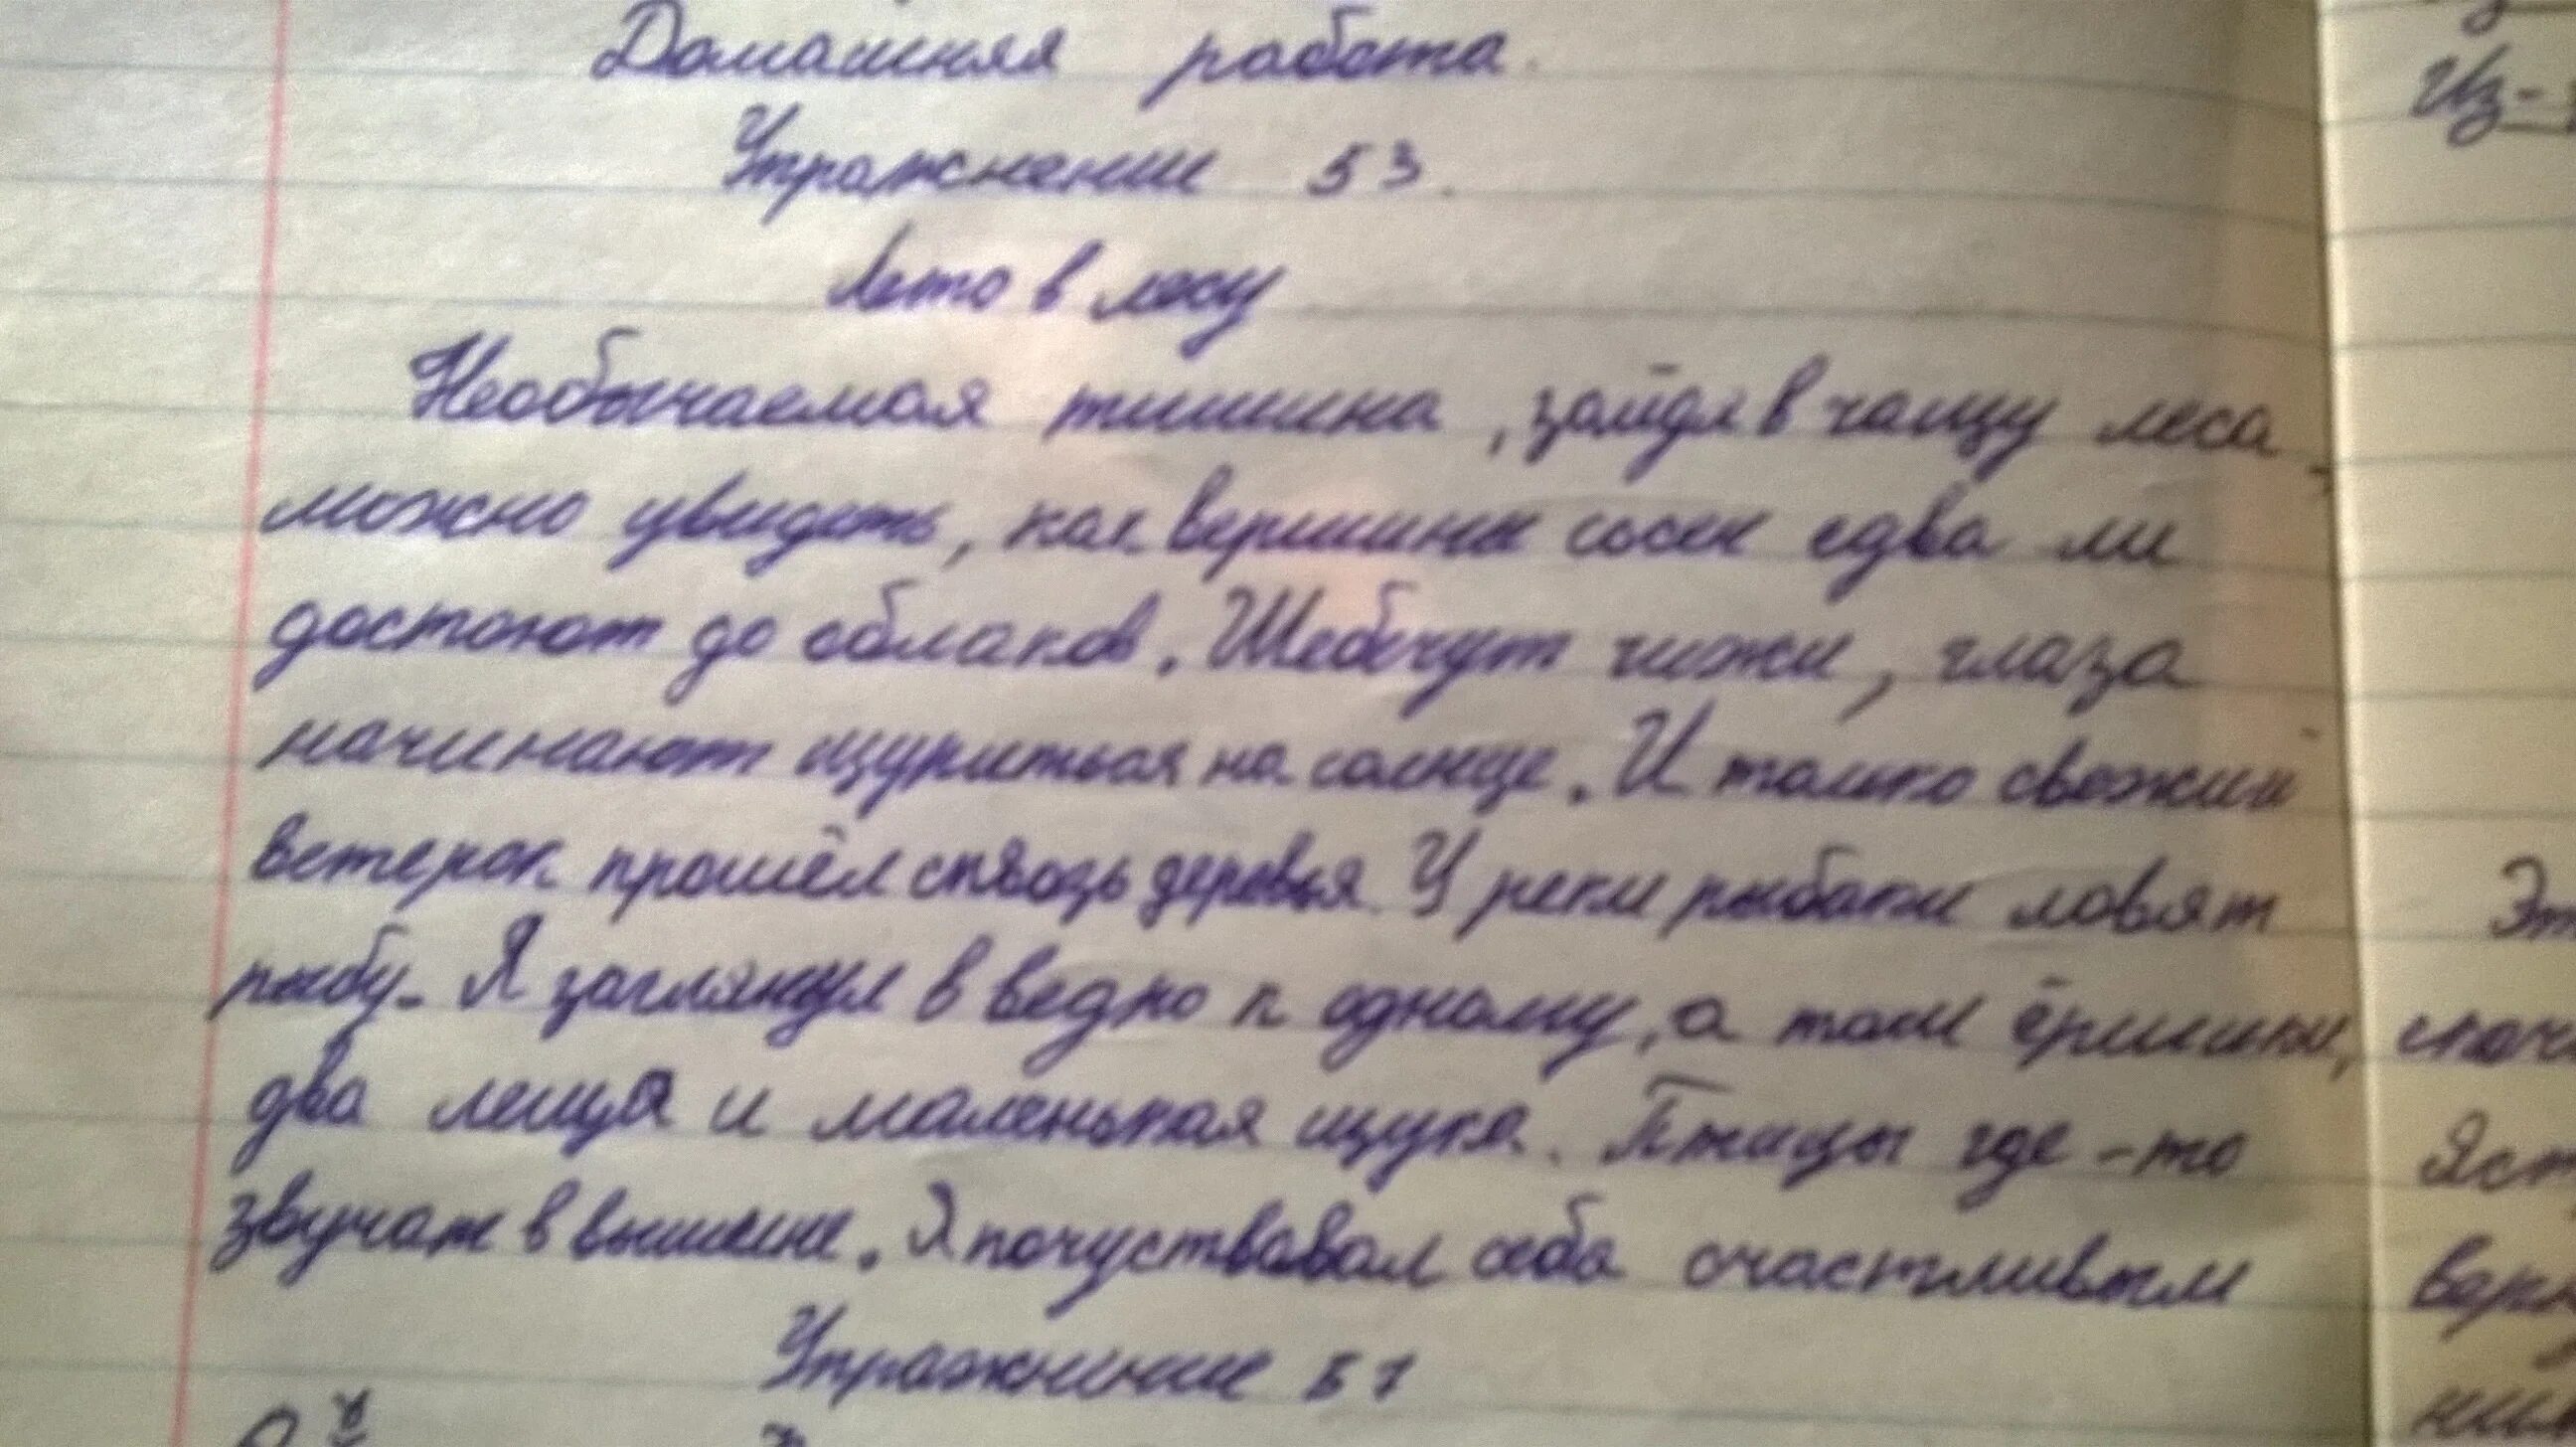 Домашняя работа.
Упражнение 53.
Лето в лесу
Необычаемая тишина, зайдя в чащу леса,
можно увидеть, как вершины сосен едва ли
достоют до облаков. Щебечут чижи, глаза
начинают щуриться на солнце. И только свежий
ветерок прошёл сквозь деревья. У реки рыбаки ловят
рыбу. Я заглянул в ведро к одному, а там ёршики,
два леща и маленькая щука. Птицы где-то
звучат в вышине. Я почуствовал себя счастливым
Упражнение 51
Из-
Эт
Яст